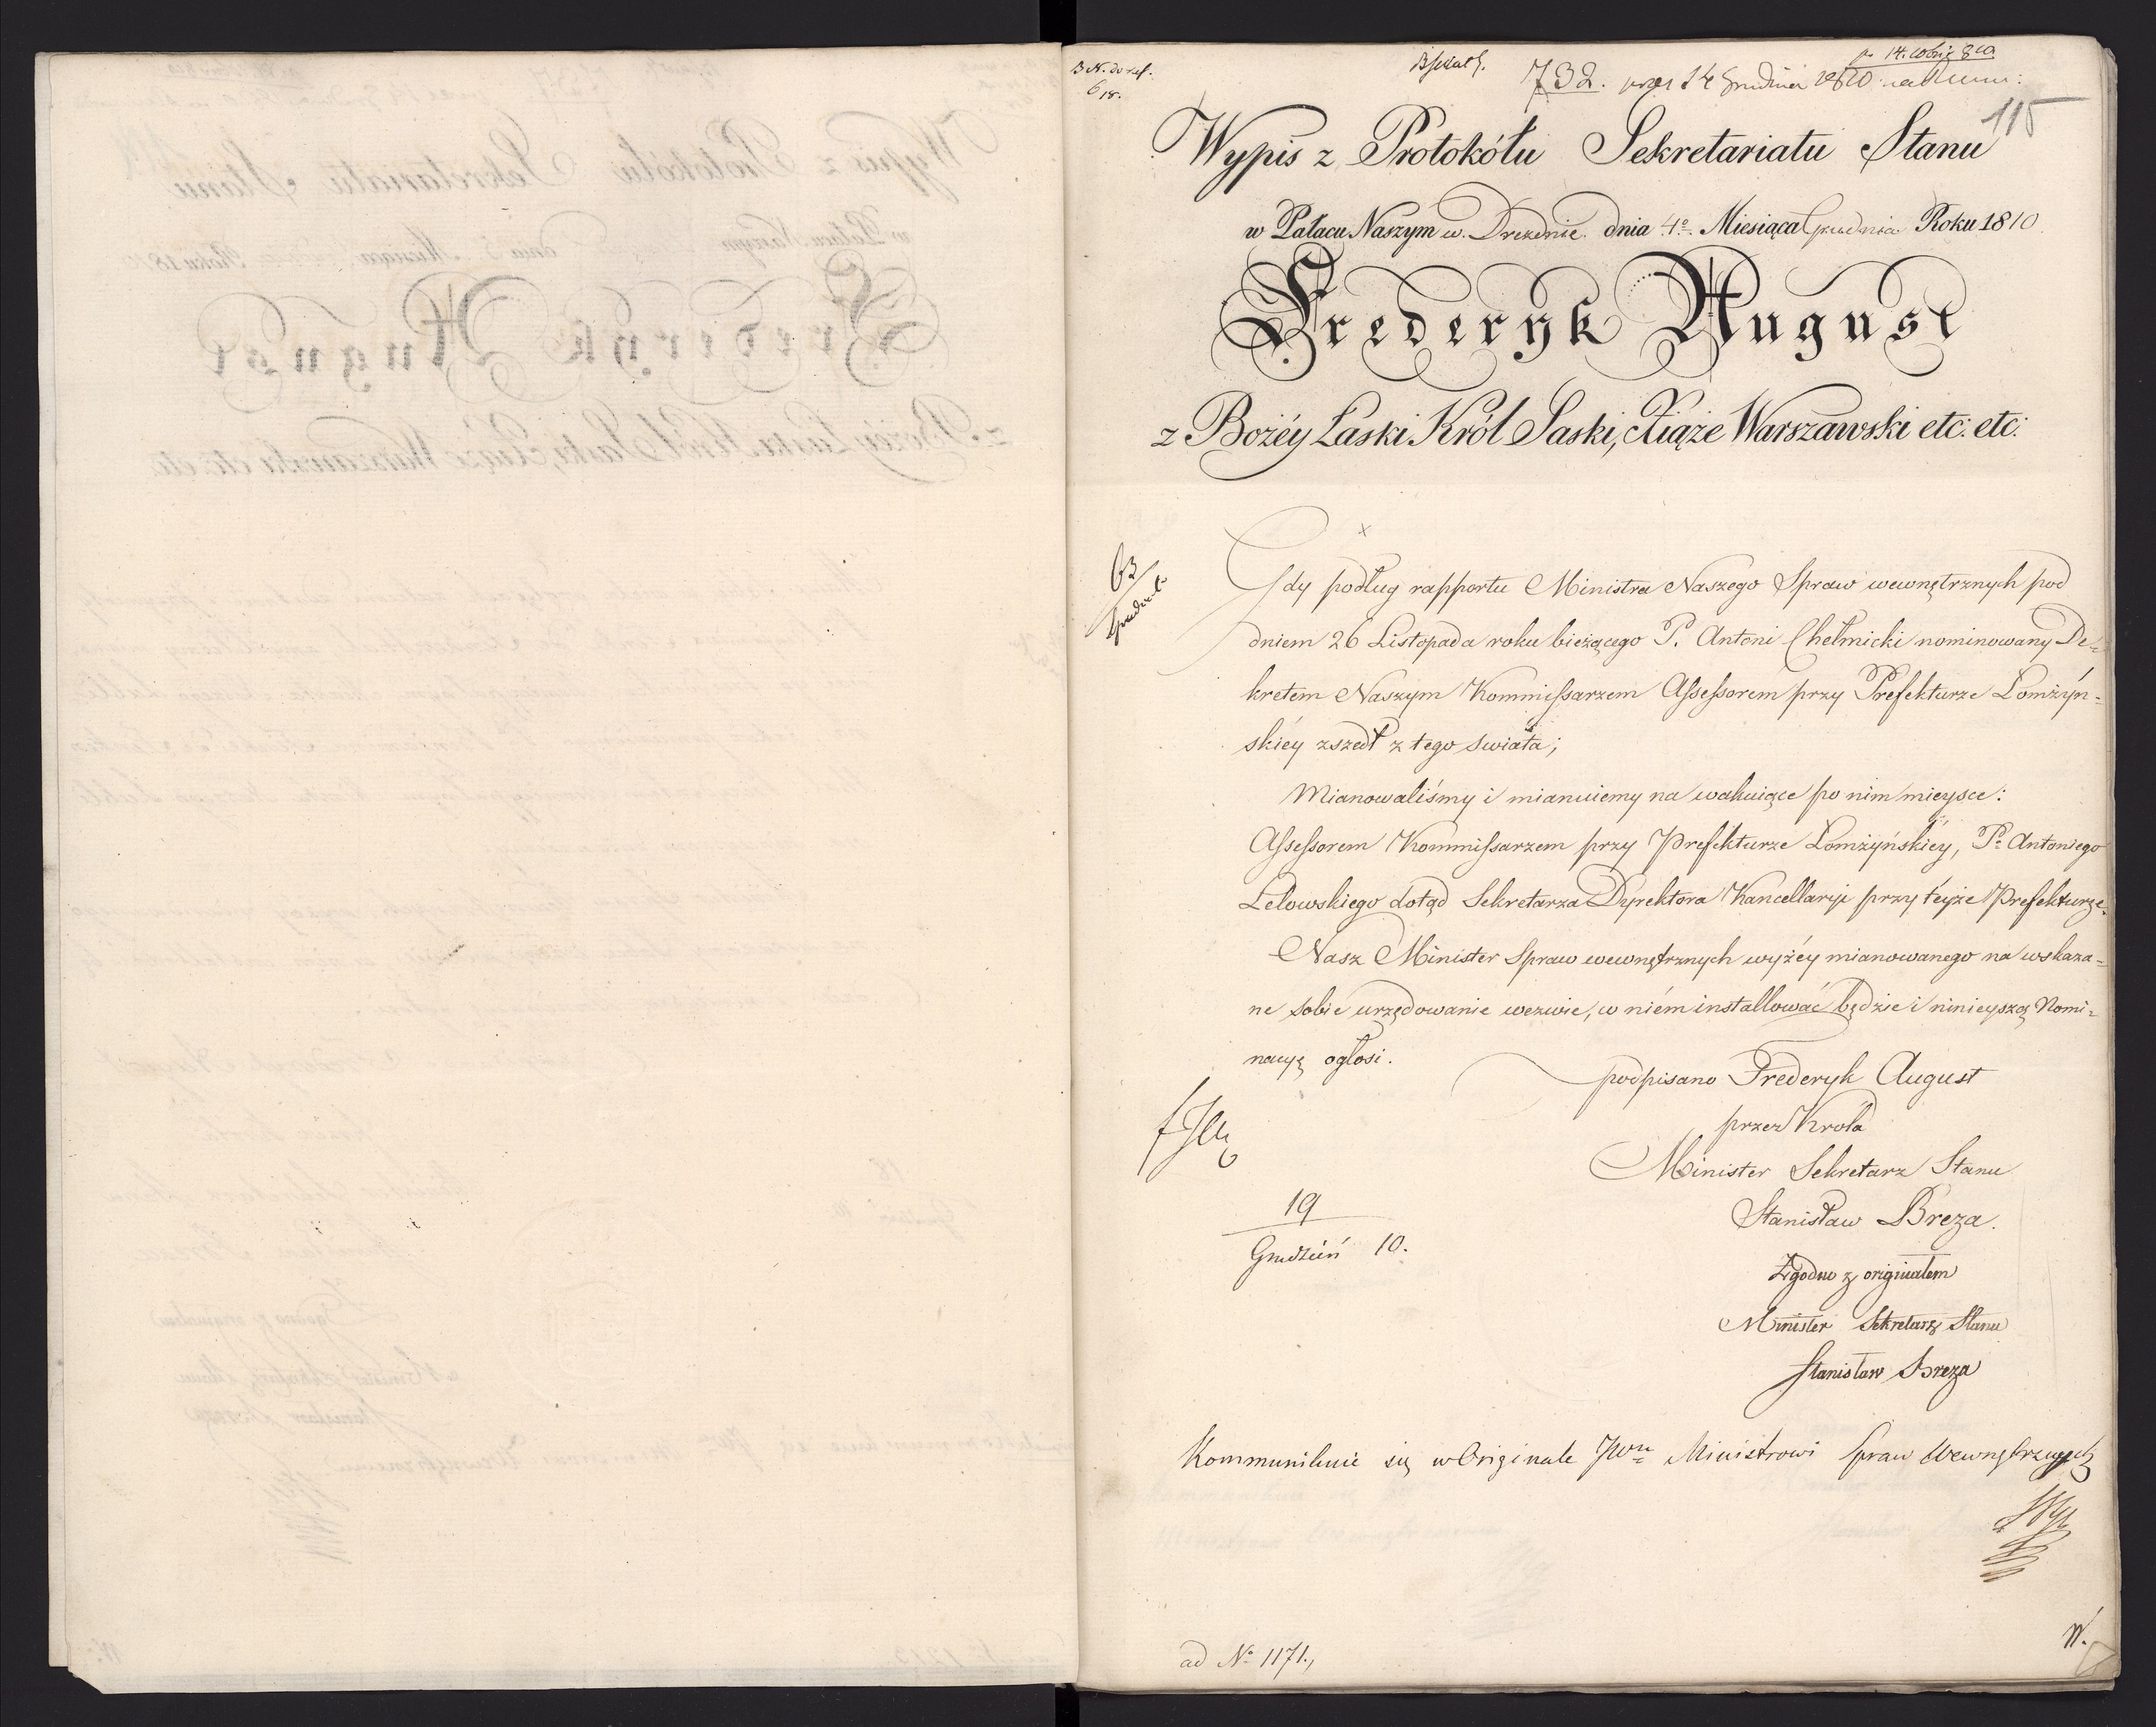 732. 14 Grudnia 1810
115
Wypis z Protokółu Sekretariatu Stanu
w Pałacu Naszym w Dreznie dnia 4º Miesiąca Grudnia Roku 1810
Frederyk August
z Bożéy Łaski Król Saski, Xiąże Warszawski etc: etc:
63
Gdy podług rapportu Ministra Naszego Spraw wewnętrznych pod
dniem 26 Listopada roku bieżącego P. Antoni Chełmicki nominowany De=
kretem Naszym Kommissarzem Assessorem przy Prefekturze Łomżyń=
skiéy zszedł z tego świata;
Mianowaliśmy i mianuiemy na wakuiące po nim mieysce:
Assessorem Kommissarzem przy Prefekturze Łomżyńskiéy, P. Antoniego
Lelowskiego dotąd Sekretarza Dyrektora Kancellaryi przy teyże Prefekturze.
Nasz Minister Spraw wewnętrznych wyżéy mianowanego na wskaza=
ne sobie urzędowanie wezwie, w niém installować będzie i ninieyszą Nomi=
nacyę ogłosi.
podpisano Frederyk August
przez Króla
Minister Sekretarz Stanu
Stanisław Breza.
19
Grudzień 10.
Zgodno z originałem
Minister Sekretarz Stanu
Stanisław Breza
Kommunikuie się w Originale JWu Ministrowi Spraw Wewnętrznych
ad Nº 1171.,
W.